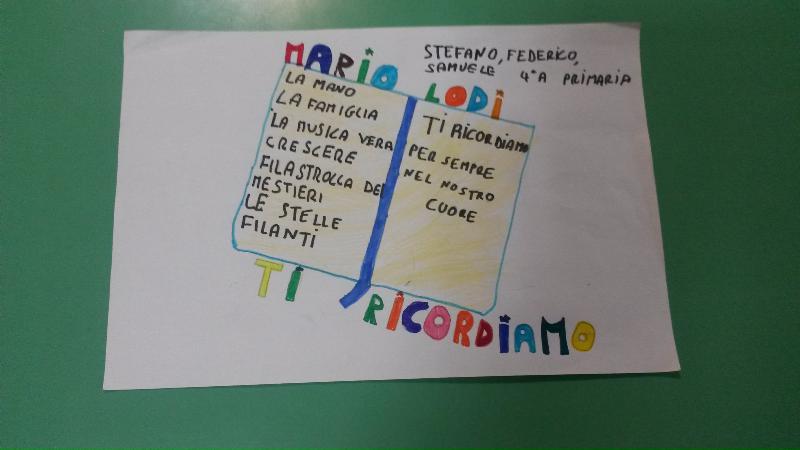 MARIO LODI
STEFANO, FEDERICO,
SAMUELE 4°A PRIMARIA
LA MANO
LA FAMIGLIA
LA MUSICA VERA
CRESCERE
FILASTROCCA DEI
MESTIERI
LE STELLE
FILANTI
TI RICORDIAMO
PER SEMPRE
NEL NOSTRO
CUORE
TI RICORDIAMO